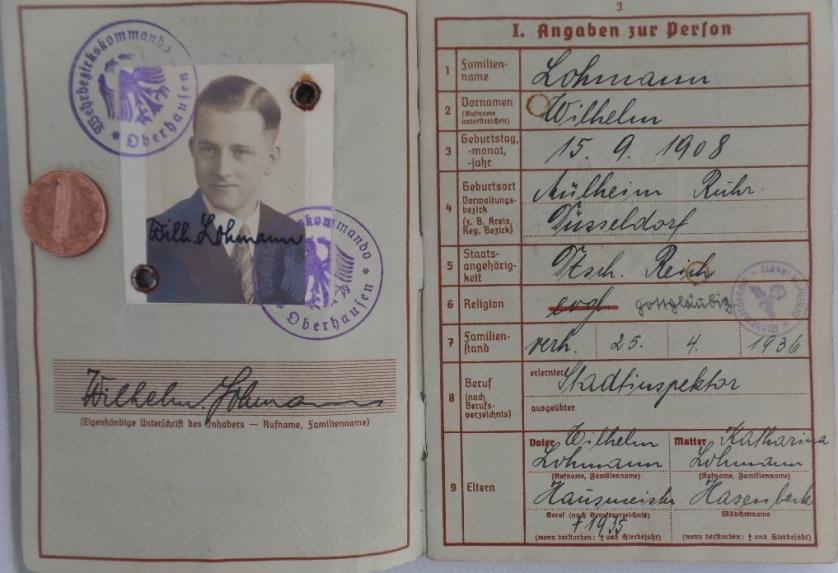 Wehrbezirkskommando
Oberhausen
Wilh. Lohmann
kommando
Oberhausen
Wilhelm Lohmann
(Eigenhändige Unterschrift des Inhabers — Rufname, Familienname)
3
I. Angaben zur Person
1 Familien-
name
Lohmann
2 Vornamen
(Rufname
unterstreichen)
Wilhelm
3 Geburtstag,
-monat,
-jahr
15. 9. 1908
4 Geburtsort
Verwaltungs-
bezirk
(z. B. Kreis,
Reg. Bezirk)
Mülheim Ruhr.
Düsseldorf
5 Staats-
angehörig-
keit
Dtsch. Reich
6 Religion
evgl gottgläubig
7 Familien-
stand
verh. 25. 4. 1936
8 Beruf
(nach
Berufs-
verzeichnis)
erlernter Stadtinspektor
ausgeübter
9 Eltern
Vater Wilhelm
Lohmann
(Rufname, Familienname)
Hausmeister
Beruf (nach Berufsverzeichnis)
† 1935
(wenn verstorben: † und Sterbejahr)
Mutter Katharina
Lohmann
(Rufname, Familienname)
Mädchenname
(wenn verstorben: † und Sterbejahr)